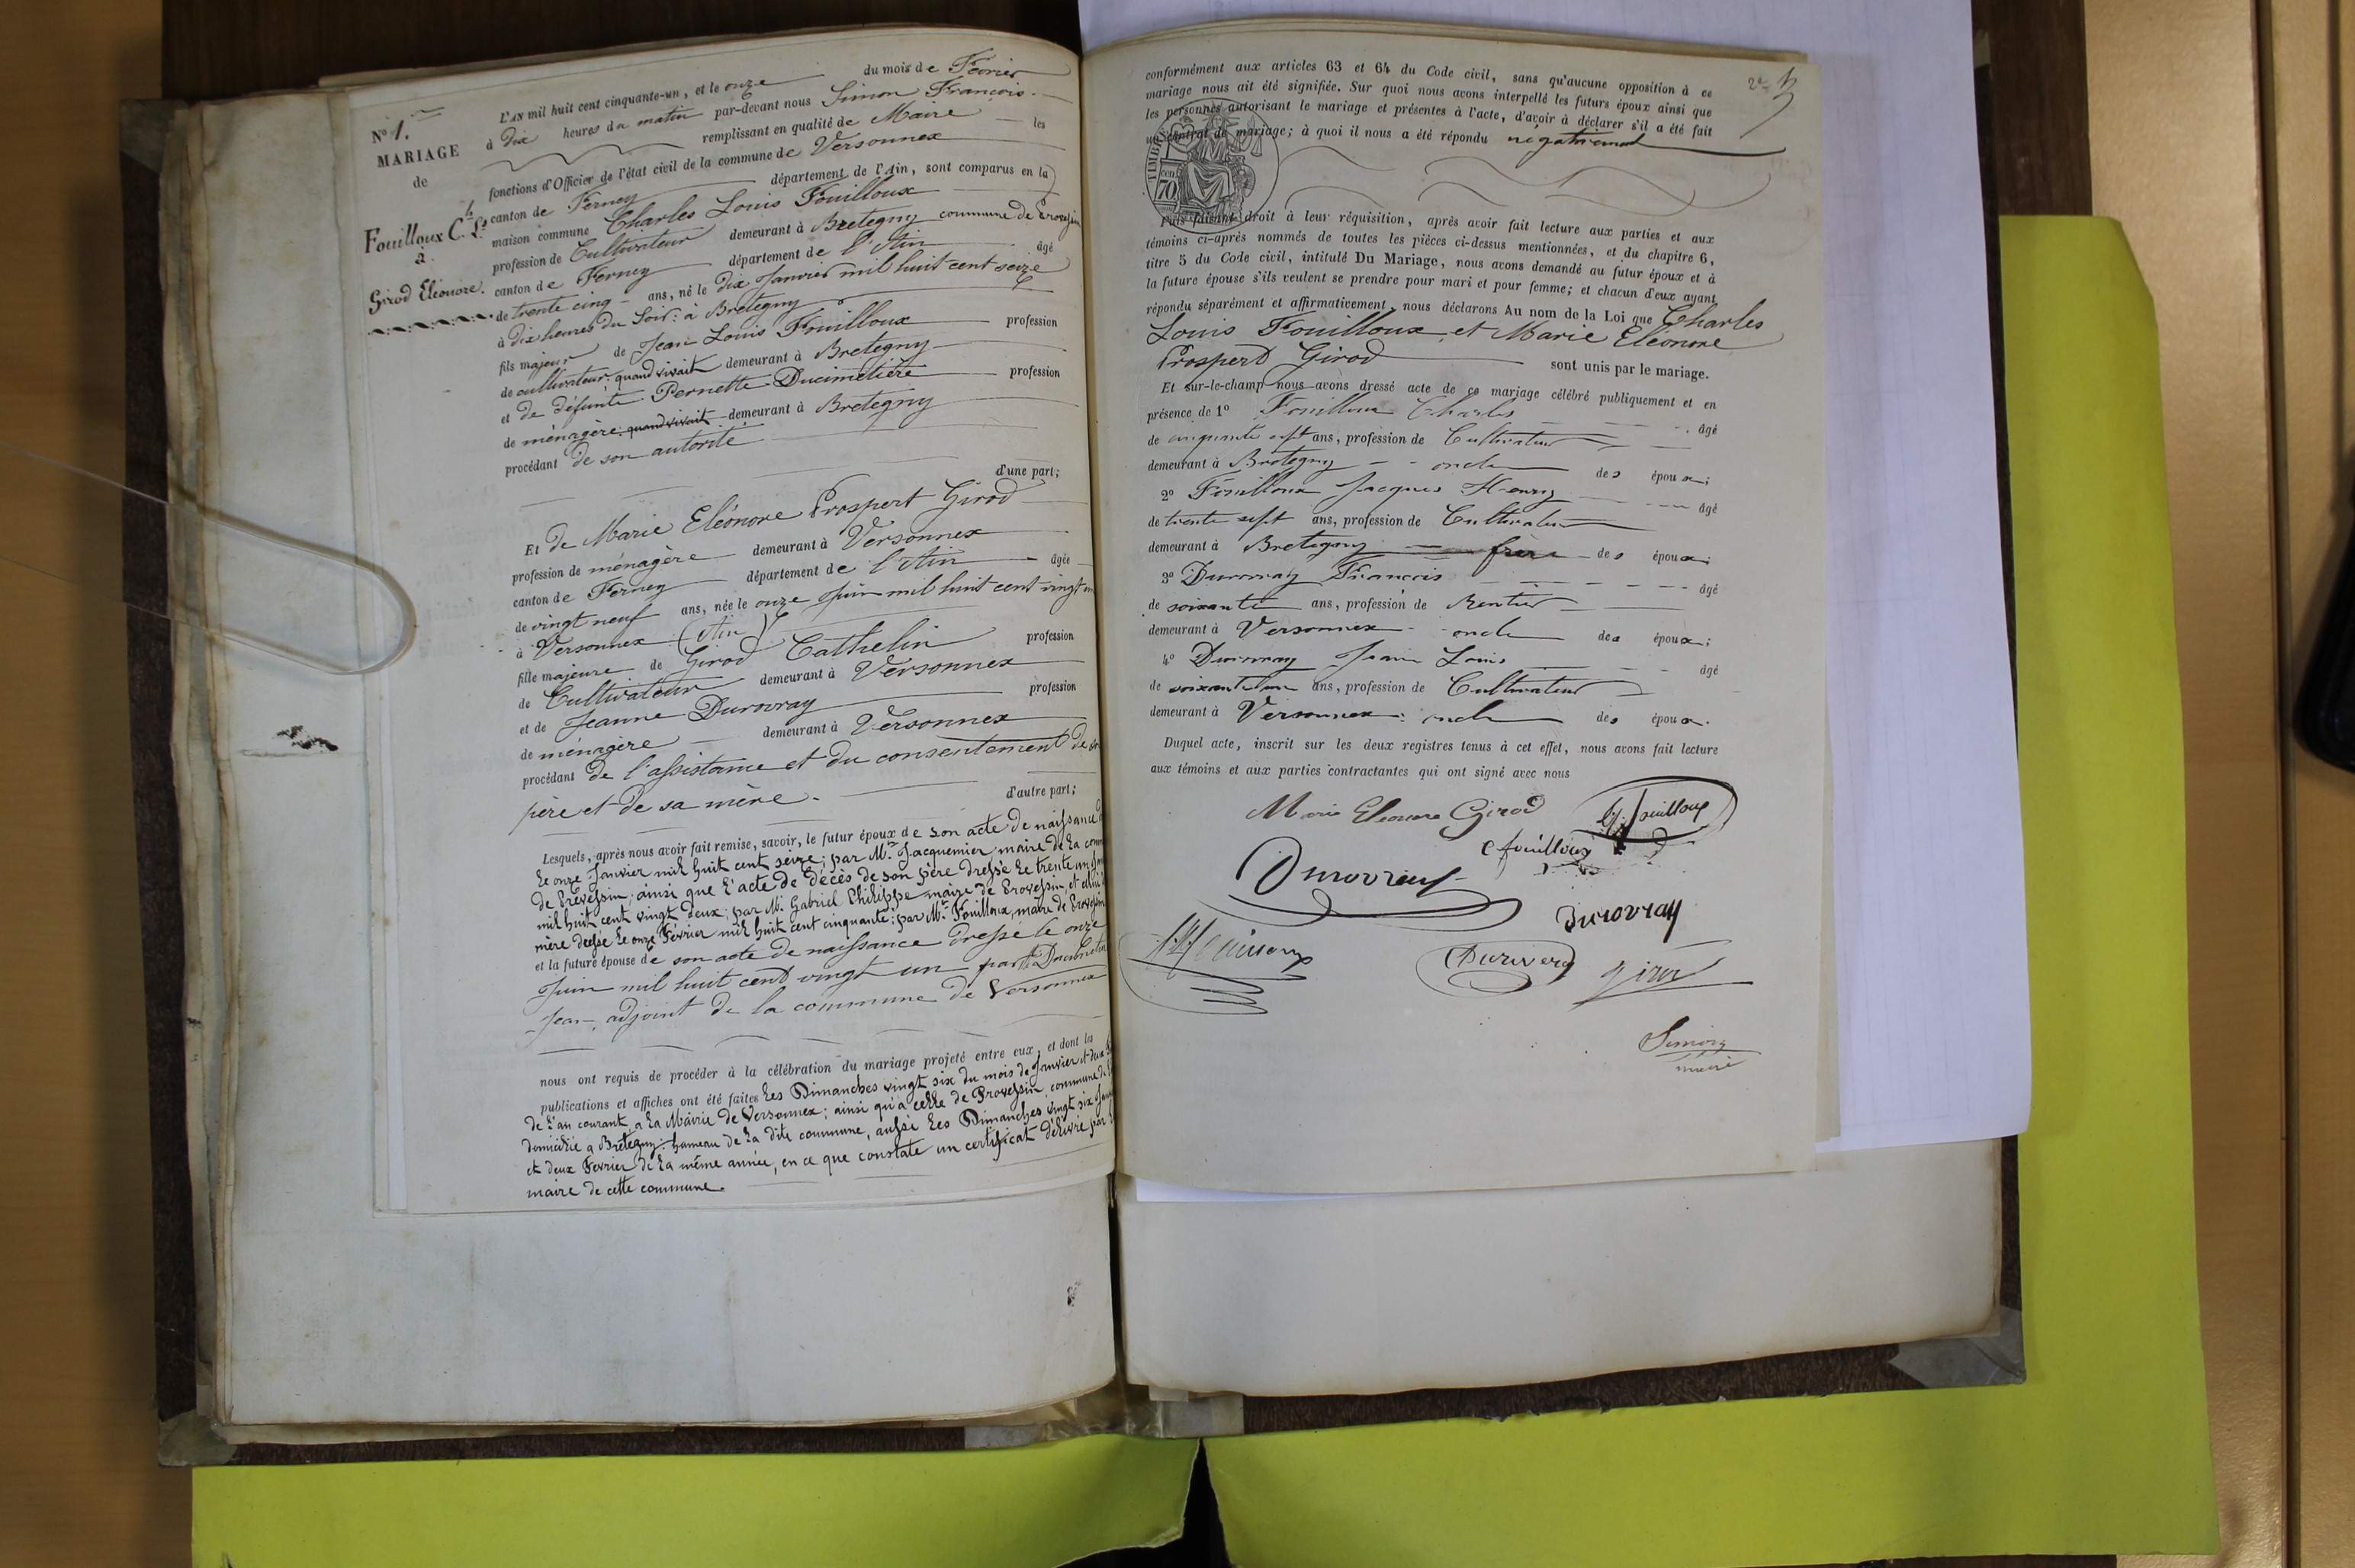 N° 1.
MARIAGE
de
Fouilloux C. L.
à
Girod Eléonore.
L'AN mil huit cent cinquante-un, et le onze du mois de Février
à dix heures du matin par-devant nous Simon François.
remplissant en qualité de Maire les
fonctions d'Officier de l'état civil de la commune de Versonnex
canton de Ferney département de l'Ain, sont comparus en la
maison commune Charles Louis Fouilloux
profession de Cultivateur demeurant à Bretegny commune de
canton de Ferney département de l'Ain âgé
de trente cinq ans, né le dix Janvier mil huit cent seize
à dix heures du Soir: à Bretegny
fils majeur de Jean Louis Fouilloux profession
de cultivateur, quand vivait demeurant à Bretegny
et de défunte Pernette Ducimetière profession
de ménagère, quand vivait demeurant à Bretegny
procédant de son autorité
d'une part;
Et de Marie Eléonore Prospert Girod
profession de ménagère demeurant à Versonnex
canton de Ferney département de l'Ain âgée
de vingt neuf ans, née le onze Juin mil huit cent vingt
à Versonnex (Ain)
fille majeure de Girod Cathelin profession
de Cultivateur demeurant à Versonnex
et de Jeanne Durovray profession
de ménagère demeurant à Versonnex
procédant de l'assistance et du consentement de
père et de sa mère.
d'autre part;
Lesquels, après nous avoir fait remise, savoir, le futur époux de son acte de naissance
le onze Janvier mil huit cent seize; par Mr. Jacquemier maire de la
de Prevessin; ainsi que l'acte de décès de son père dressé le trente un
mil huit cent vingt deux; par Mr. Gabriel Philippe maire de Provessin, et
mère dressé le onze Février mil huit cent cinquante; par Mr. Fouilloux, maire de Provessin
et la future épouse de son acte de naissance dressé le onze
Juin mil huit cent vingt un par
Jean, adjoint de la commune de Versonnex
nous ont requis de procéder à la célébration du mariage projeté entre eux, et dont les
publications et affiches ont été faites les Dimanches vingt six du mois de Janvier et deux
de l'an courant, a la Mairie de Versonnex; ainsi qu'à celle de Provessin, commune
domicilié a Bretegny hameau de la dite commune, aussi les Dimanches vingt six
et deux Fevrier de la même année, en ce que constate un certificat délivré par
maire de cette commune.
2e
conformément aux articles 63 et 64 du Code civil, sans qu'aucune opposition à ce
mariage nous ait été signifiée. Sur quoi nous avons interpellé les futurs époux ainsi que
les personnes autorisant le mariage et présentes à l'acte, d'avoir à déclarer s'il a été fait
un contrat de mariage; à quoi il nous a été répondu négativement
TIMBRE
70
Puis faisant droit à leur réquisition, après avoir fait lecture aux parties et aux
témoins ci-après nommés de toutes les pièces ci-dessus mentionnées, et du chapitre 6,
titre 5 du Code civil, intitulé Du Mariage, nous avons demandé au futur époux et à
la future épouse s'ils veulent se prendre pour mari et pour femme; et chacun d'eux ayant
répondu séparément et affirmativement, nous déclarons Au nom de la Loi que Charles
Louis Fouilloux et Marie Eléonore
Prospert Girod sont unis par le mariage.
Et sur-le-champ nous avons dressé acte de ce mariage célébré publiquement et en
présence de 1° Fouilloux Charles âgé
de cinquante sept ans, profession de Cultivateur
demeurant à Bretegny oncle des époux;
2° Fouilloux Jacques Henry âgé
de trente sept ans, profession de Cultivateur
demeurant à Bretegny frère des époux;
3° Durovray François âgé
de soixante ans, profession de Rentier
demeurant à Versonnex oncle des époux;
4° Durovray Jean Louis âgé
de soixante un ans, profession de Cultivateur
demeurant à Versonnex oncle des époux.
Duquel acte, inscrit sur les deux registres tenus à cet effet, nous avons fait lecture
aux témoins et aux parties contractantes qui ont signé avec nous
Marie Eleonore Girod
Fouilloux
C fouilloux
Durovray
Durovray
Girod
Simon
maire